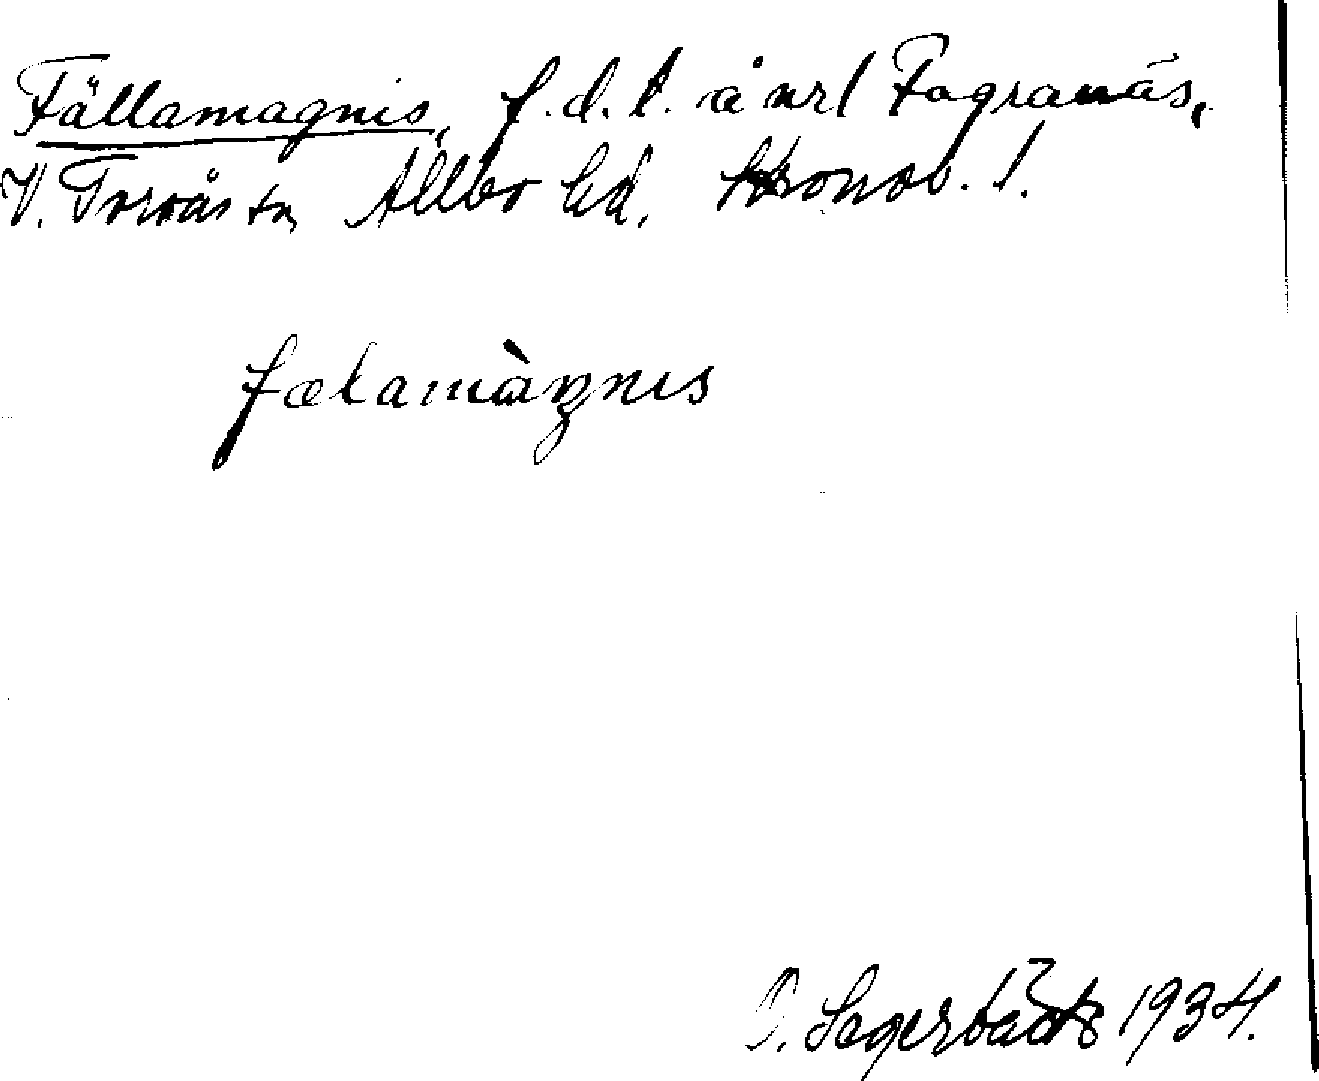 Fällamagnis, f.d.t. å url Fagranäs,
V. Torsås sn, Allbo hd, Kronob. l.
fælamàgnis
Lagerbäck 1934.